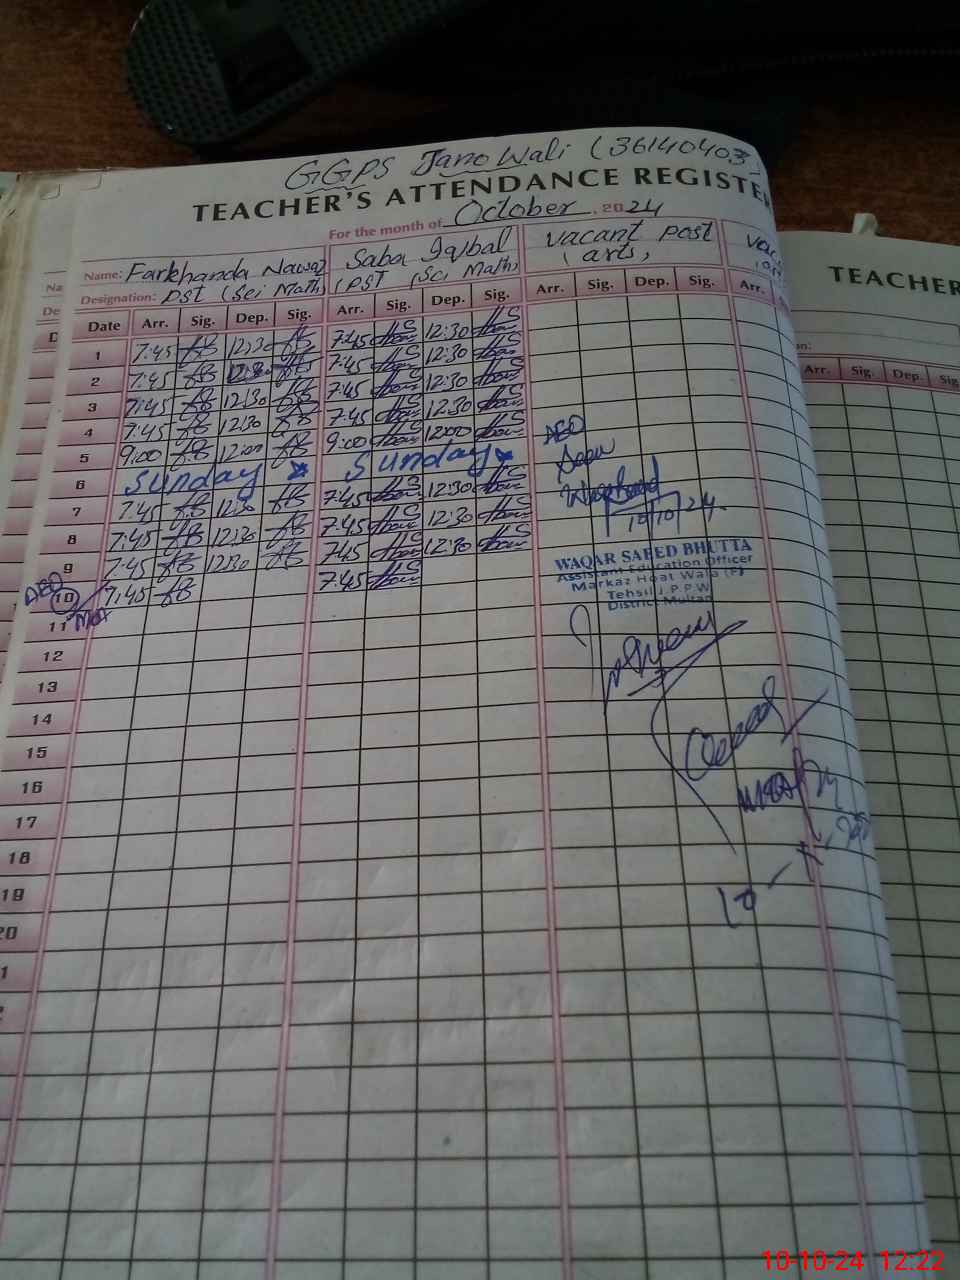 GGPS Jano Wali (36140403
TEACHER'S ATTENDANCE REGISTE
For the month of October, 2024
Name: Farkhanda Nawaz Saba Iqbal vacant post
Designation: PST (Sci Math) (PST (Sci Math) (arts)
Date Arr. Sig. Dep. Sig. Arr. Sig. Dep. Sig. Arr. Sig. Dep. Sig. Arr.
1 7:45 12:30 7:45 12:30
2 7:45 12:30 7:45 12:30
3 7:45 12:30 7:45 12:30
4 7:45 12:30 7:45 12:30
5 9:00 12:00 9:00 12:00
6 Sunday Sunday
7 7:45 12:30 7:45 12:30
8 7:45 12:30 7:45 12:30
9 7:45 12:30 7:45 12:30
10 7:45 7:45
11
12
13
14
15
16
17
18
19
20
AEO
Seen
10/10/24
WAQAR SAEED BHUTTA
Assistant Education Officer
Markaz Hoat Wala (F)
Tehsil J.P.P.W
District Multan
TEACHER
Arr. Sig. Dep. Sig
10-10-24 12:22